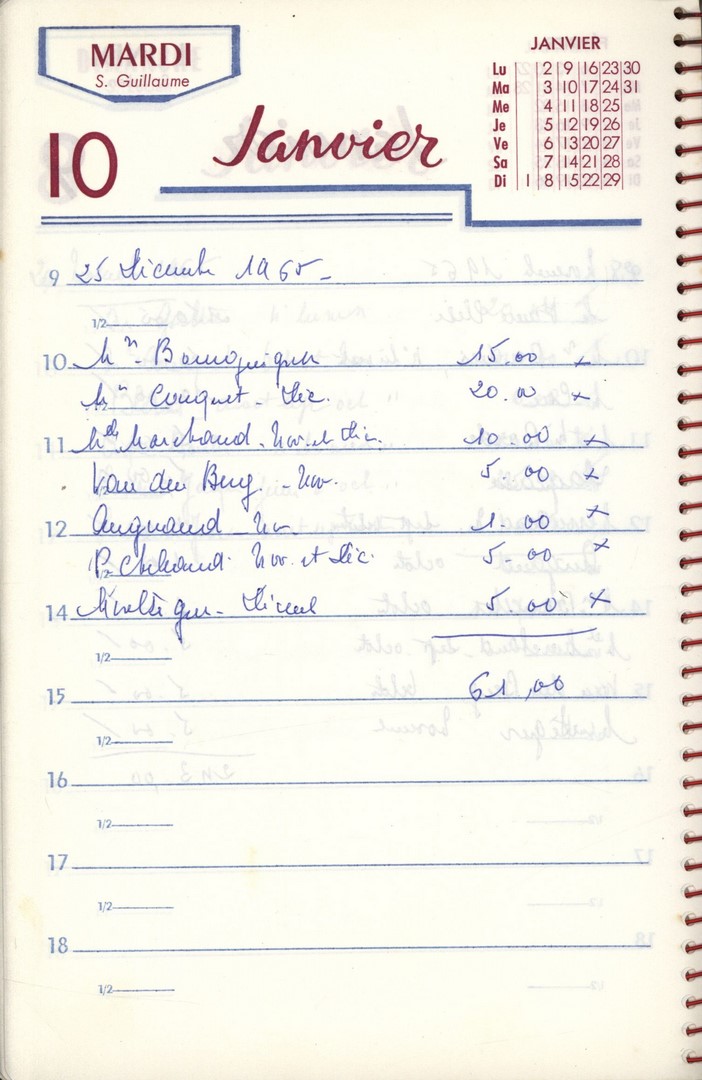 MARDI
S. Guillaume
10
Janvier
JANVIER
Lu 2 9 16 23 30
Ma 3 10 17 24 31
Me 4 11 18 25
Je 5 12 19 26
Ve 6 13 20 27
Sa 7 14 21 28
Di 1 8 15 22 29
9 25 Décembre 1965
1/2
10 15.00 x
1/2 Couquet - Déc. 20.00 x
11 Marchand. Nov. et Déc. 10.00 x
1/2 Van den Berg. - Nov. 5.00 x
12 - Nov 1.00 x
1/2 Nov. et Déc. 5.00 x
14 5.00 x
1/2
15 61,00
1/2
16
1/2
17
1/2
18
1/2